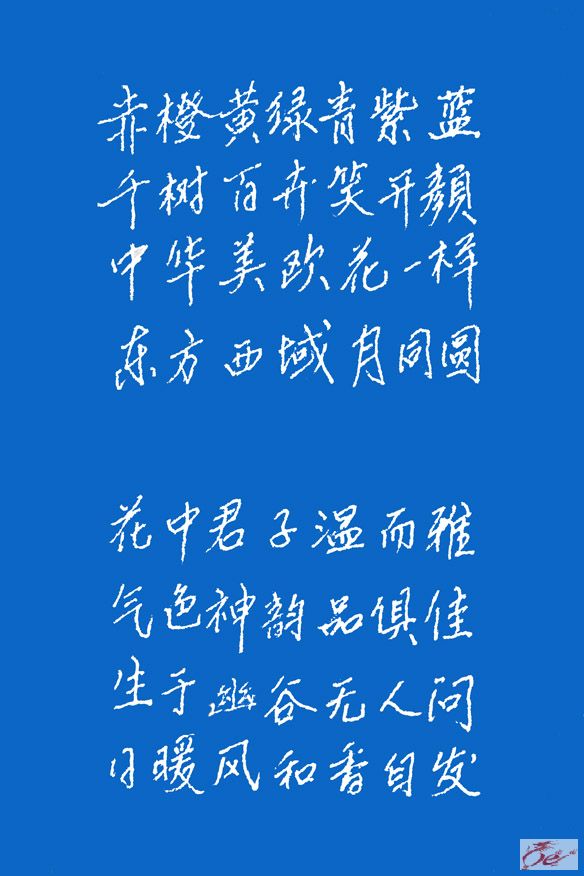 赤橙黄绿青紫蓝
千树百卉笑开颜
中华美欧花一样
东方西域月同圆
花中君子温而雅
气色神韵品俱佳
生于幽谷无人问
日暖风和香自发